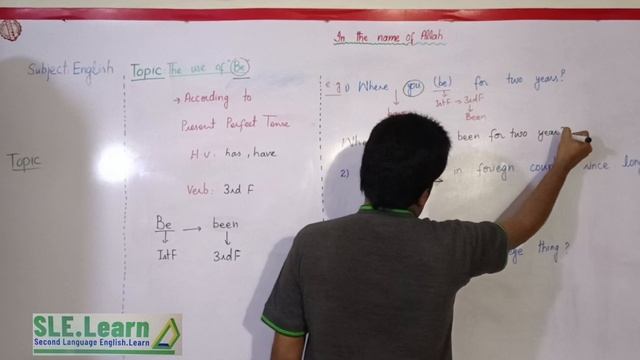 In the name of Allah
Subject: English
Topic: The use of "Be"
Topic
→ According to
Present Perfect Tense
H.v: has, have
Verb: 3rd F
Be → been
1st F 3rd F
e.g 1) Where you (be) for two years?
1st F → 3rd F
Been
been for two years
2) in foreign since
thing?
SLE.Learn
Second Language English.Learn